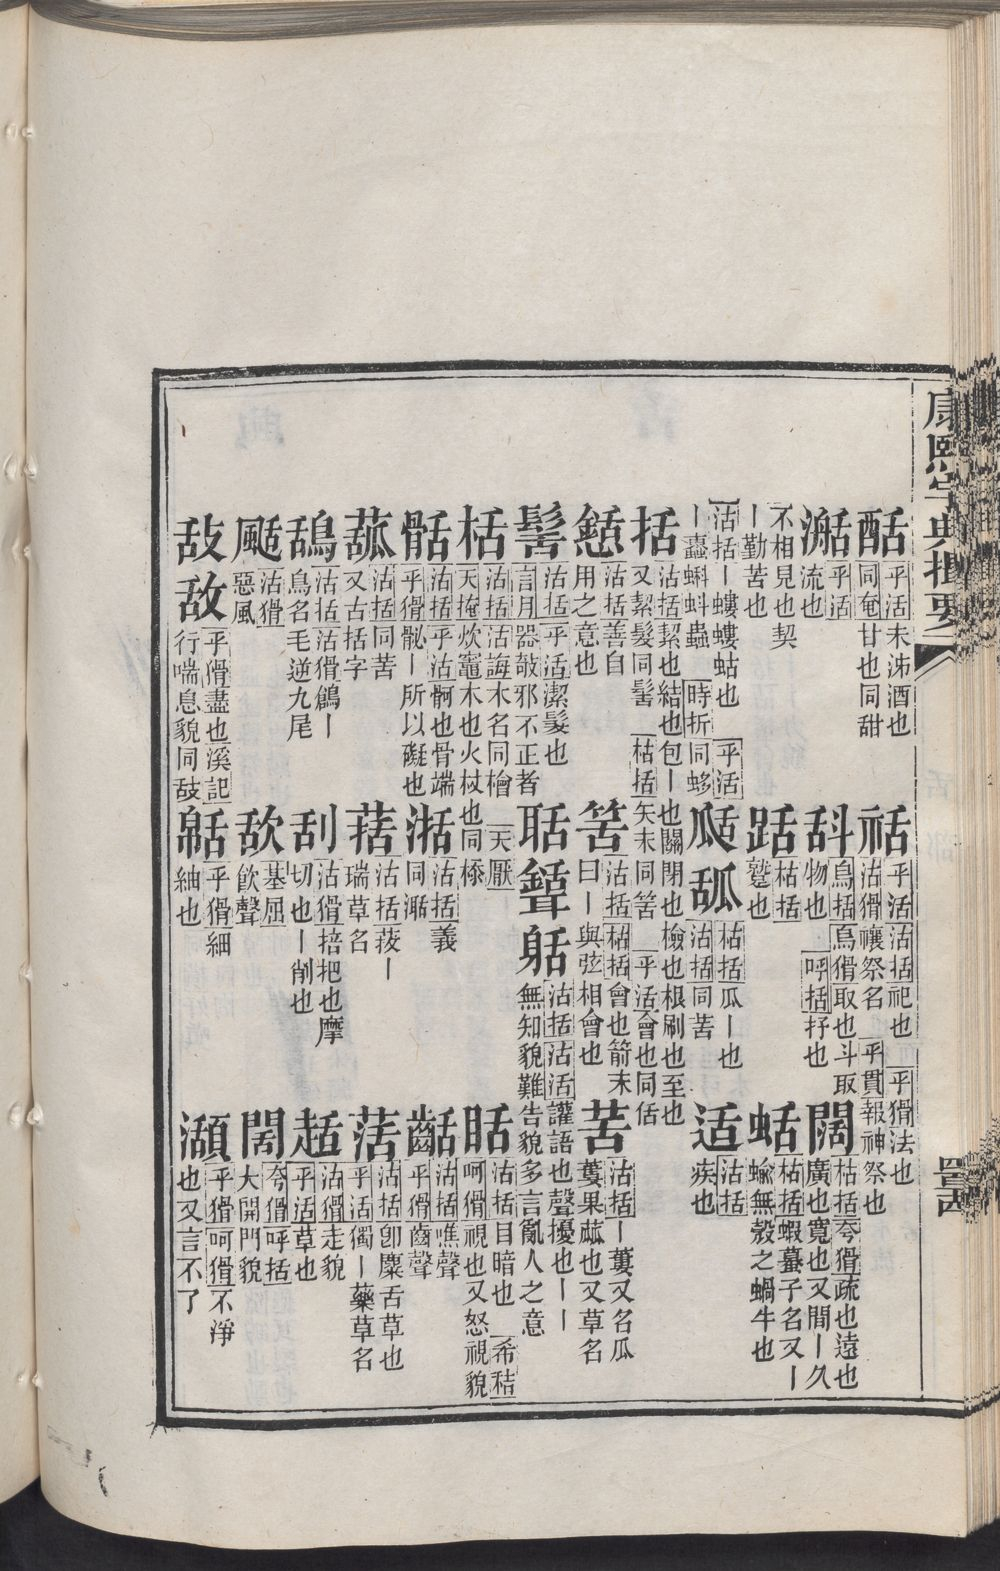 康熙字典撮要
𨠡 平活 未沸酒也
同奄 甘也同甜
祮 平活 沽括 祀也 平猾 法也
沽猾 禳祭名 平貫 報神祭也
澵 平活
流也
𣂏 烏括 烏猾 取也斗取
物也 呼括 抒也
闊 枯括 夸猾 疏也遠也
廣也寬也又間丨久
不相見也契
丨勤苦也
䟯 枯括
躄也
蛞 枯括 蝦蟇子名又丨
蝓無殼之蝸牛也
沽括 丨螻螻蛄也 平活
丨䗝蝌蚪蟲 時折 同蛥
𤬑 㼋 枯括 瓜丨也
沽括 同苦
适 沽括
疾也
括 沽括 絜也結也包丨也關閉也檢也根刷也至也
又絜髮同髺 枯括 矢末同筈 平活 會也同佸
懖 沽括 善自
用之意也
筈 沽括 枯括 會也箭末
曰丨與弦相會也
苦 沽括 丨蔞又名瓜
蔞果蓏也又草名
髺 沽括 平活 潔髮也
言月 器㪣邪不正者
聒 𦗒 䠸 沽括 沽活 讙語也聲擾也丨丨
無知貌難告貌多言亂人之意
栝 沽括 沽誨 木名同檜 天厭
天掩 炊竈木也火杖也同㮇
䀨 沽括 目暗也 希秸
呵猾 視也又怒視貌
骺 沽括 平沽 𩨗也骨端
平猾 骲丨所以礙也
湉 沽括 義
同㴸
䶎 沽括 噍聲
平猾 齒聲
菰 沽括 同苦
又古括字
萿 沽括 菝丨
瑞草名
葀 沽括 卽麋舌草也
平活 獨丨藥草名
鴰 沽括 沽猾 鶬丨
鳥名毛逆九尾
刮 沽猾 掊把也摩
切也丨削也
趏 沽猾 走貌
平活 草也
颳 沽猾
惡風
㰦 基屈
飲聲
闊 夸猾 呼括
大開門貌
㪉 敌 平猾 盡也 溪記
行喘息貌同㪉
𢃤 平猾 細
紬也
㵧 平猾 呵猾 不淨
也又言不了